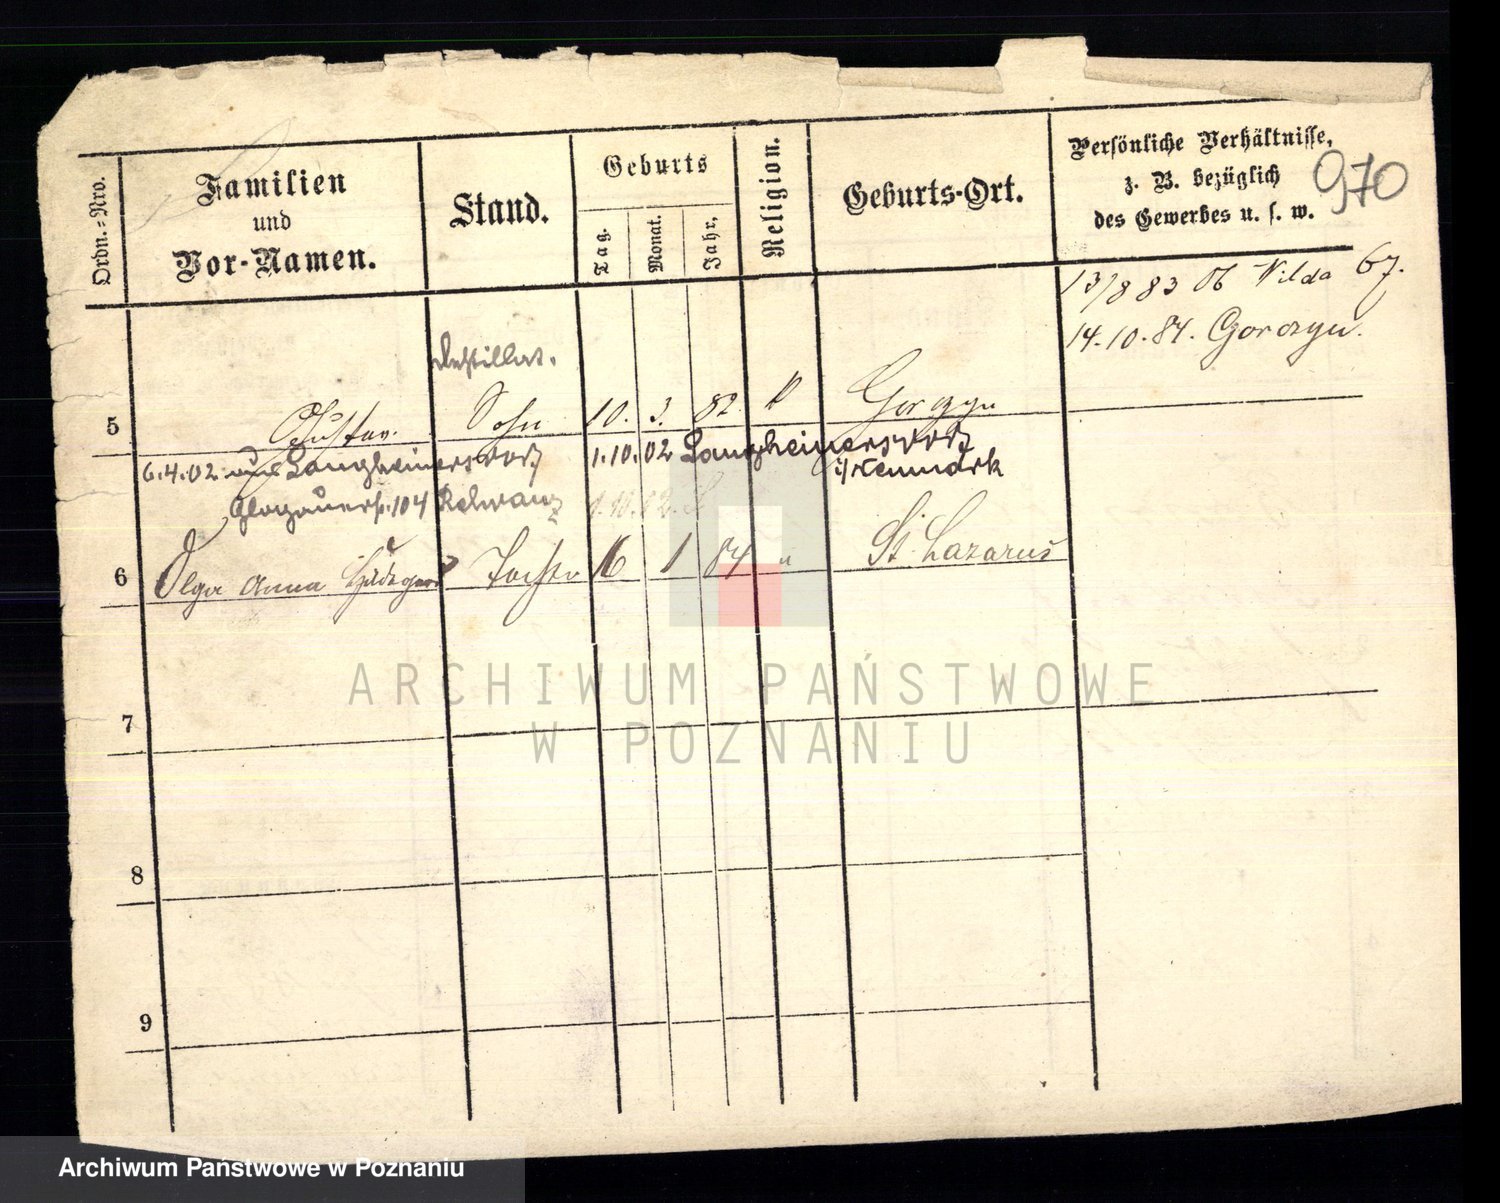 Ordn.-Nro.
Familien
und
Vor-Namen.
Stand.
Geburts
Tag.
Monat.
Jahr,
Religion.
Geburts-Ort.
Persönliche Verhältnisse,
z. B. bezüglich
des Gewerbes u. s. w.
970
13/8 83 Ob Wilda 67.
14.10.84. Gorczyn.
Destillat.
5 Gustav. Sohn 10. 3. 82 k Gorczyn
6.4.02 aus Langheinersdorf 1.10.02 Langheinersdorf
i/Neumark
Glogauerst. 104
1.10.02. L
6 Olga Anna Hildegard Tochter 16 1 84 " St. Lazarus
ARCHIWUM PAŃSTWOWE
W POZNANIU
7
8
9
Archiwum Państwowe w Poznaniu